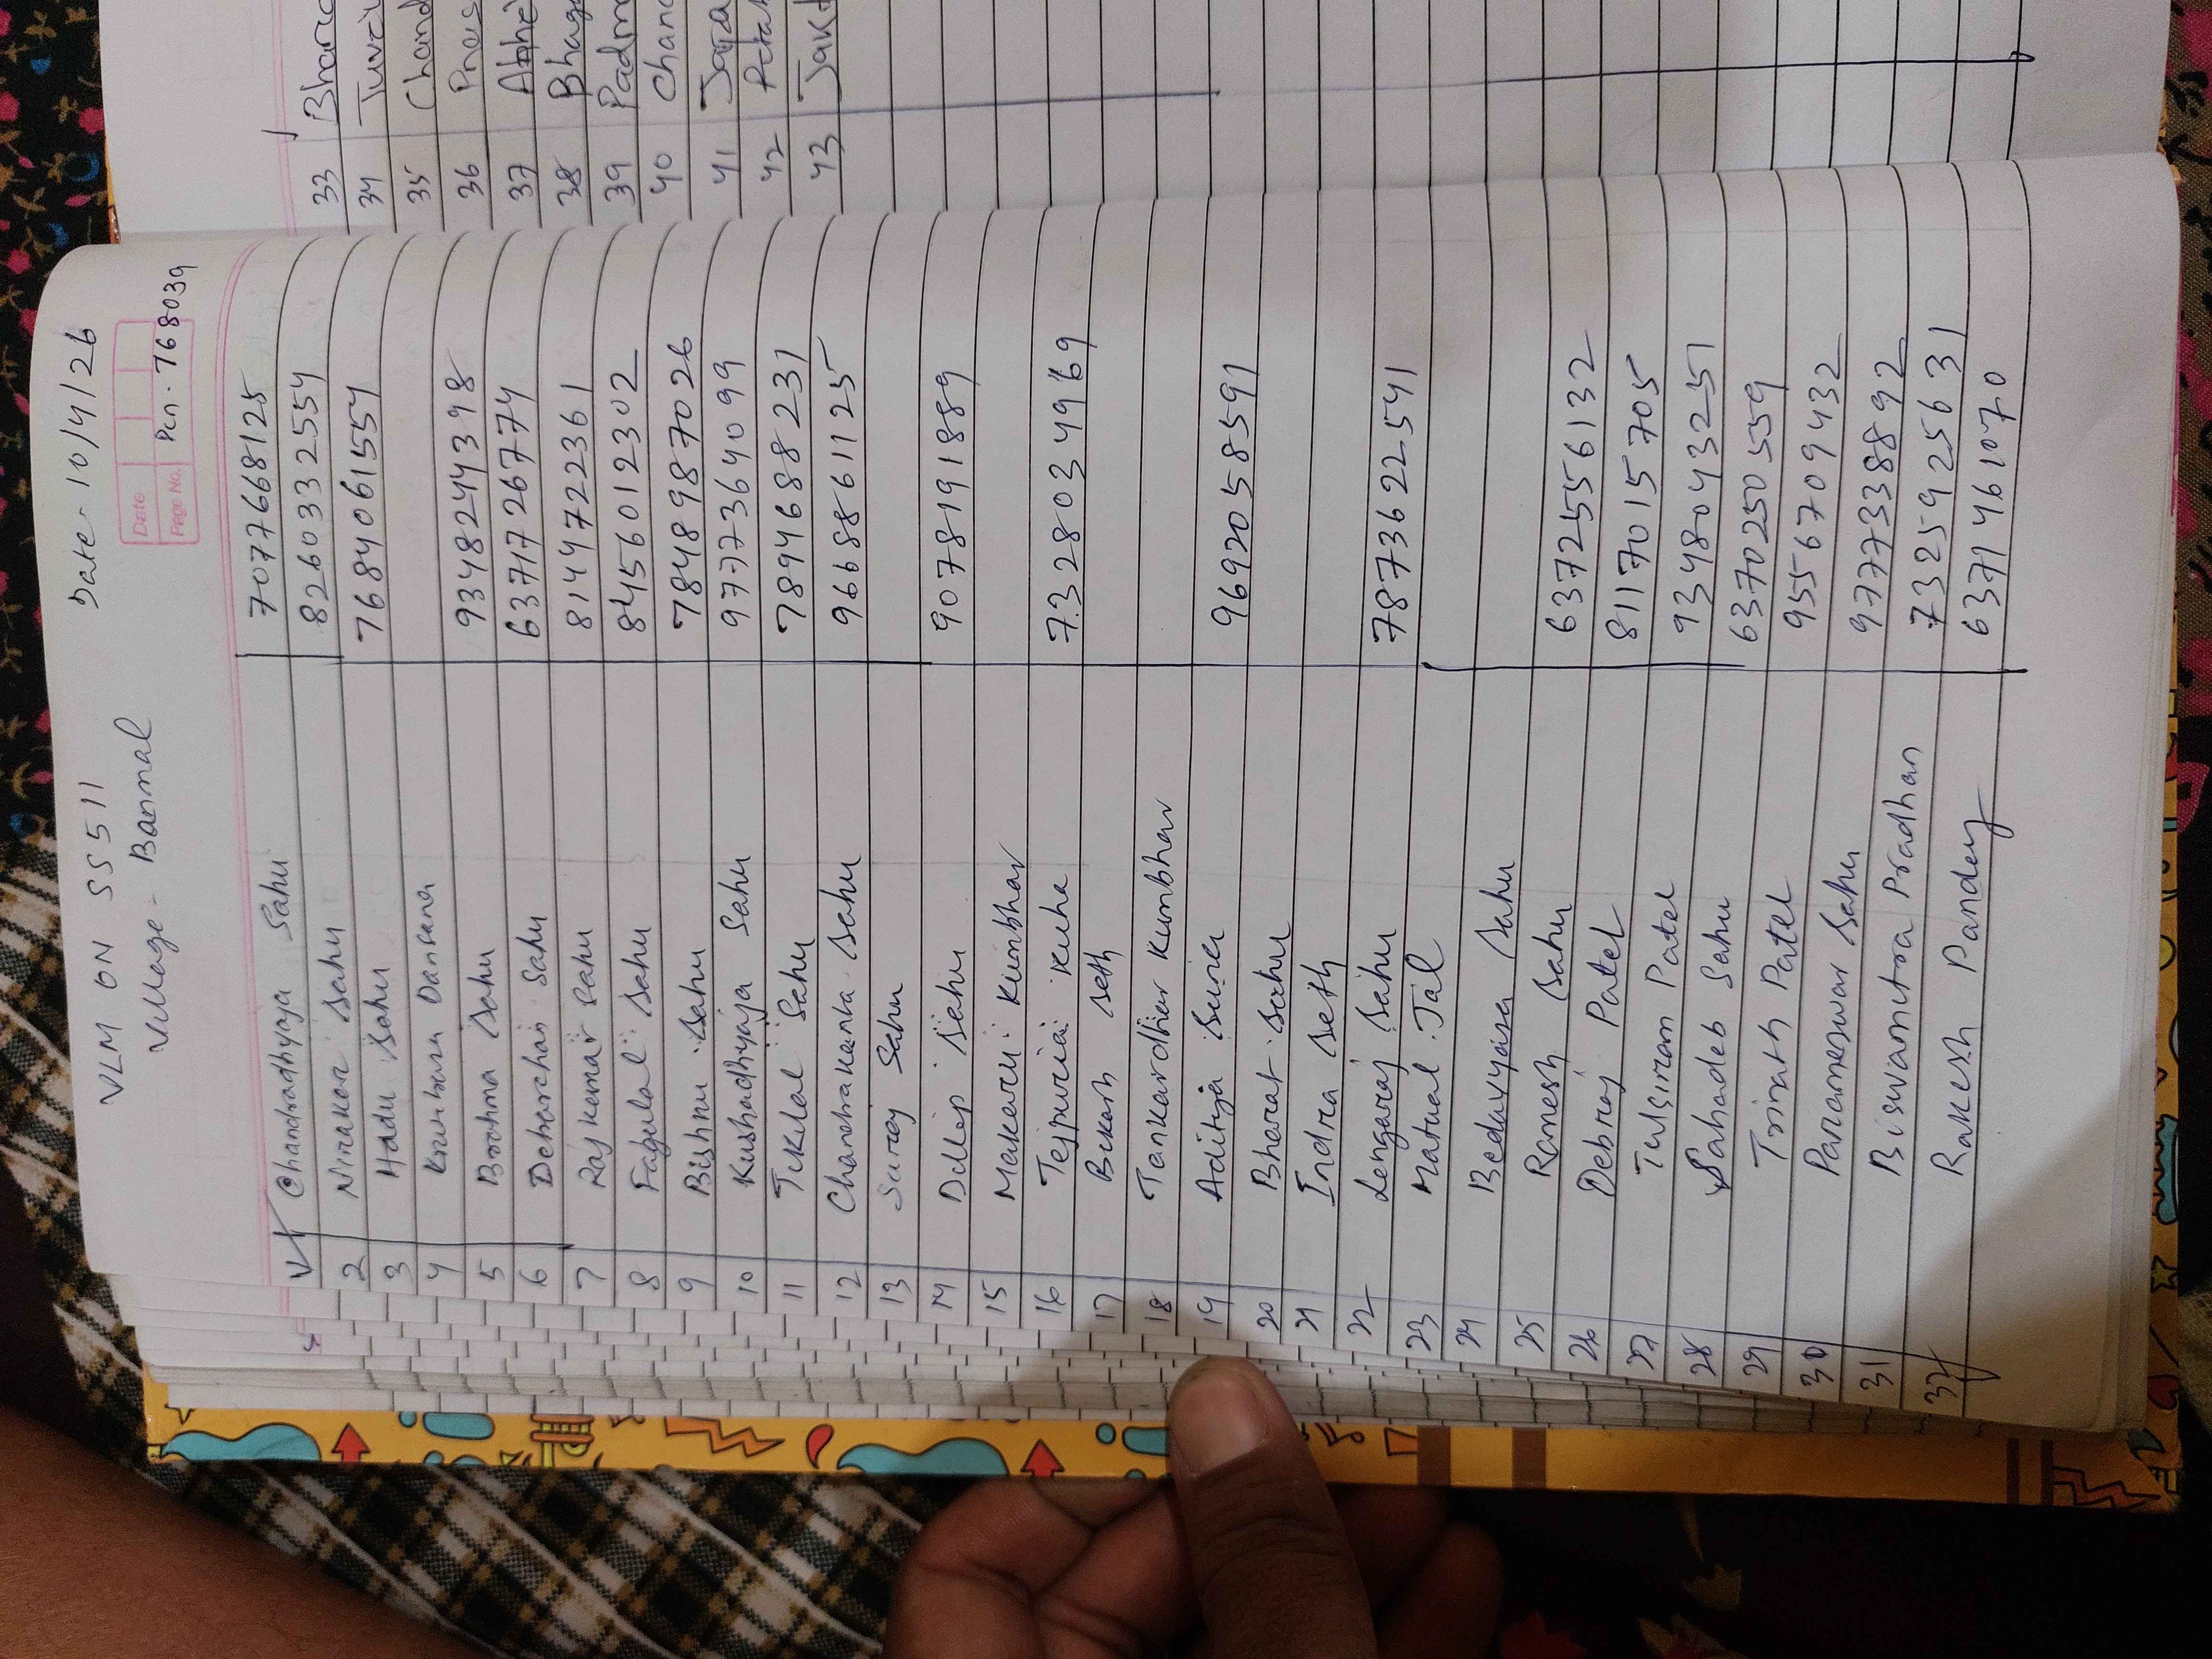 VLM ON SS 511 Date - 10/4/26
Village - Barmal
Date
Page No. Pin. 768039
1 Chandradhyaja Sahu 7077668125
2 Nirakar Sahu 8260332554
3 Hadu Sahu 7684061554
4 Dansana
5 Brahma Sahu 9348244398
6 Debarchan Sahu 6371726774
7 Rajkumar Sahu 8144722361
8 Fagulal Sahu 8456012302
9 Bishnu Sahu 7848987026
10 Kushadhyaja Sahu 9777364099
11 Tikulal Sahu 7894688231
12 Chandrakanta Sahu 9668861125
13 Suraj Sahu
14 Dillip Sahu 9078191889
15 Makaru Kumbhar
16 Tejpuriai Kuha 7328034969
17 Bikash Seth
18 Tankardhar Kumbhar
19 Aditya Suna 9692058591
20 Bharat Sahu
21 Indra Seth
22 Lengaraj Sahu 7873622541
23 Matual Jal
24 Bedavyasa Sahu
25 Ramesh Sahu 6372556132
26 Debraj Patel 8117015705
27 Tulsiram Patel 9348043251
28 Sahadeb Sahu 6370250559
29 Trinath Patel 9556709432
30 Parameswar Sahu 9777338892
31 Biswamitra Pradhan 7325925631
32 Rakesh Pandey 6371461070
33 Bhara
34
35 Chand
36
37 Abhe
38 Bhag
39 Padm
40 Chan
41
42
43